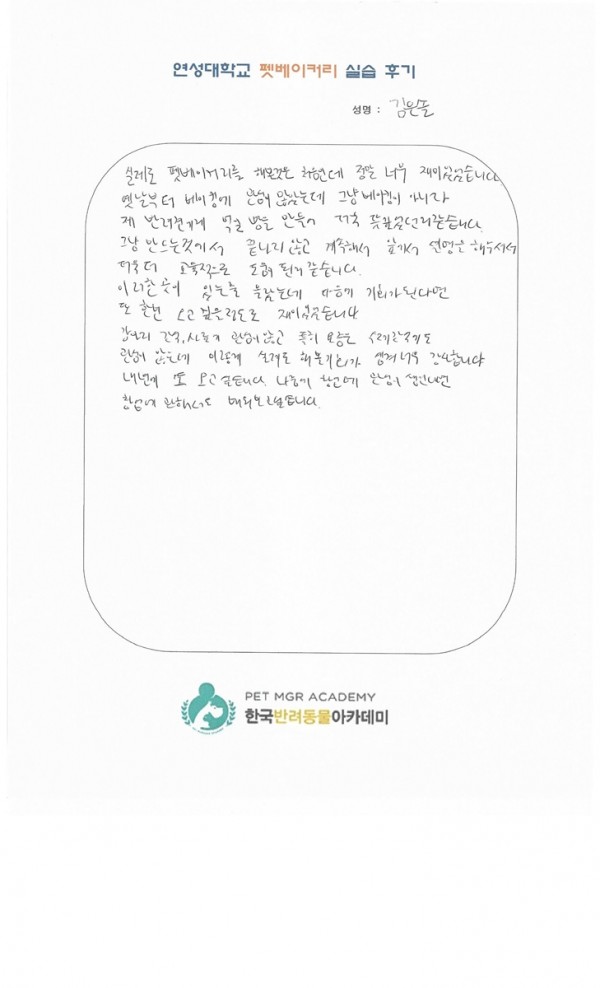 연성대학교 펫베이커리 실습 후기
성명 : 김은솔
실제로 펫베이커리를 해본것은 처음인데 정말 너무 재미있었습니다
옛날부터 베이킹에 관심이 많았는데 그냥 베이킹이 아니라
제 반려견에게 먹일 빵을 만들어 더욱 뜻깊었던거같습니다.
그냥 만드는것에서 끝나지 않고 계속해서 앞에서 설명을 해주셔서
더욱더 교육적으로 도움이 된거 같습니다.
이러한 곳이 있는줄 몰랐는데 다음에 기회가 된다면
또 한번 오고 싶을정도로 재미있었습니다
간식, 사료에 관심이 많고 특히 요즘은 수제간식에도
관심이 많은데 이렇게 실제로 해볼기회가 생겨 너무 감사합니다
내년에 또 오고 싶습니다. 나중에 창업에 관심이 생긴다면
창업에 관해서도 배워보고싶습니다.
PET MGR ACADEMY
한국반려동물아카데미